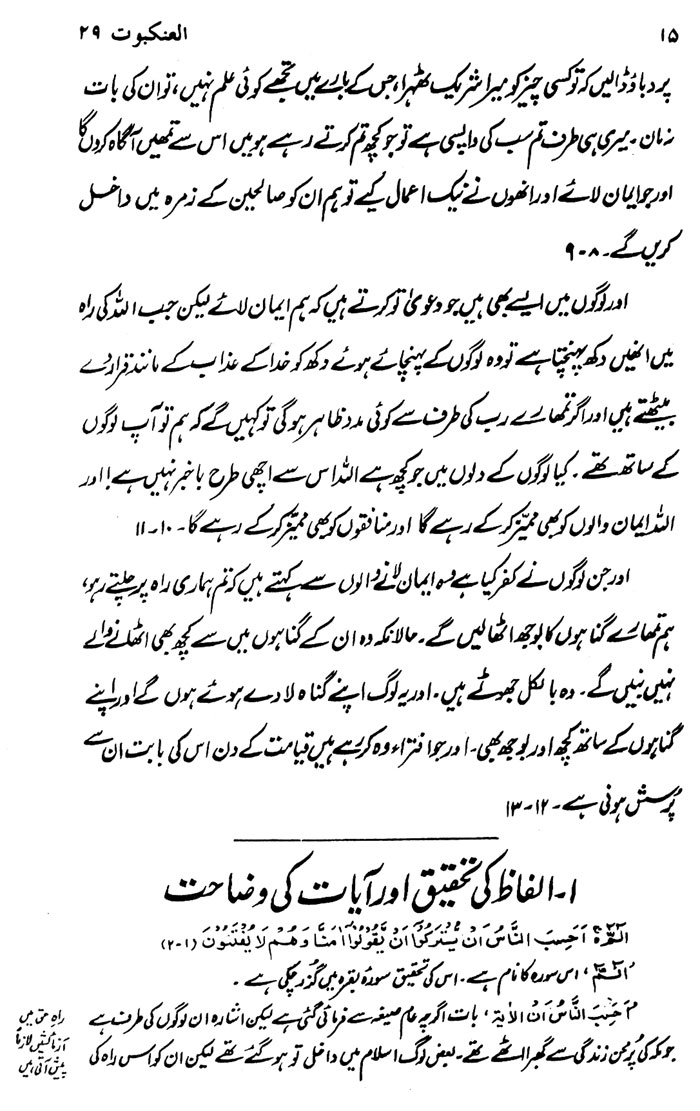 ۱۵ العنکبوت ۲۹
پر دباؤ ڈالیں کہ تو کسی چیز کو میرا شریک ٹھہرا، جس کے بارے میں تجھے کوئی علم نہیں، تو ان کی بات
نہ مان۔ میری ہی طرف تم سب کی واپسی ہے تو جو کچھ تم کرتے رہے ہو میں اس سے تمھیں آگاہ کروں گا
اور جو ایمان لائے اور انھوں نے نیک اعمال کیے تو ہم ان کو صالحین کے زمرہ میں داخل
کریں گے۔ ۸-۹
اور لوگوں میں ایسے بھی ہیں جو دعویٰ تو کرتے ہیں کہ ہم ایمان لائے لیکن جب اللہ کی راہ
میں انھیں دکھ پہنچتا ہے تو وہ لوگوں کے پہنچائے ہوئے دکھ کو خدا کے عذاب کے مانند قرار دے
بیٹھتے ہیں اور اگر تمھارے رب کی طرف سے کوئی مدد ظاہر ہو گی تو کہیں گے کہ ہم تو آپ لوگوں
کے ساتھ تھے۔ کیا لوگوں کے دلوں میں جو کچھ ہے اللہ اس سے اچھی طرح باخبر نہیں ہے! اور
اللہ ایمان والوں کو بھی ممیّز کر کے رہے گا اور منافقوں کو بھی ممیّز کر کے رہے گا۔ ۱۰-۱۱
اور جن لوگوں نے کفر کیا ہے وہ ایمان لانے والوں سے کہتے ہیں کہ تم ہماری راہ پر چلتے رہو،
ہم تمھارے گناہوں کا بوجھ اٹھا لیں گے۔ حالانکہ وہ ان کے گناہوں میں سے کچھ بھی اٹھانے والے
نہیں بنیں گے۔ وہ بالکل جھوٹے ہیں۔ اور یہ لوگ اپنے گناہ لادے ہوئے ہوں گے اور اپنے
گناہوں کے ساتھ کچھ اور بوجھ بھی۔ اور جو افتراء وہ کر رہے ہیں قیامت کے دن اس کی بابت ان سے
پُرسش ہونی ہے۔ ۱۲-۱۳
۱۔ الفاظ کی تحقیق اور آیات کی وضاحت
الٓمّٓ ۚ اَحَسِبَ النَّاسُ اَنْ يُّتْرَكُوْٓا اَنْ يَّقُوْلُوْٓا اٰمَنَّا وَهُمْ لَا يُفْتَنُوْنَ (۱-۲)
'الٓمّٓ'، اس سورہ کا نام ہے۔ اس کی تحقیق سورۂ بقرہ میں گزر چکی ہے۔
'اَحَسِبَ النَّاسُ اَنْ الاٰیۃ'، بات اگرچہ عام صیغہ سے فرمائی گئی ہے لیکن اشارہ ان لوگوں کی طرف ہے
جو مکہ کی پُرمحن زندگی سے گھبرا اٹھے تھے۔ بعض لوگ اسلام میں داخل تو ہو گئے تھے لیکن ان کو اس راہ کی
راہِ حق میں
آزمائشیں لازماً
پیش آتی ہیں